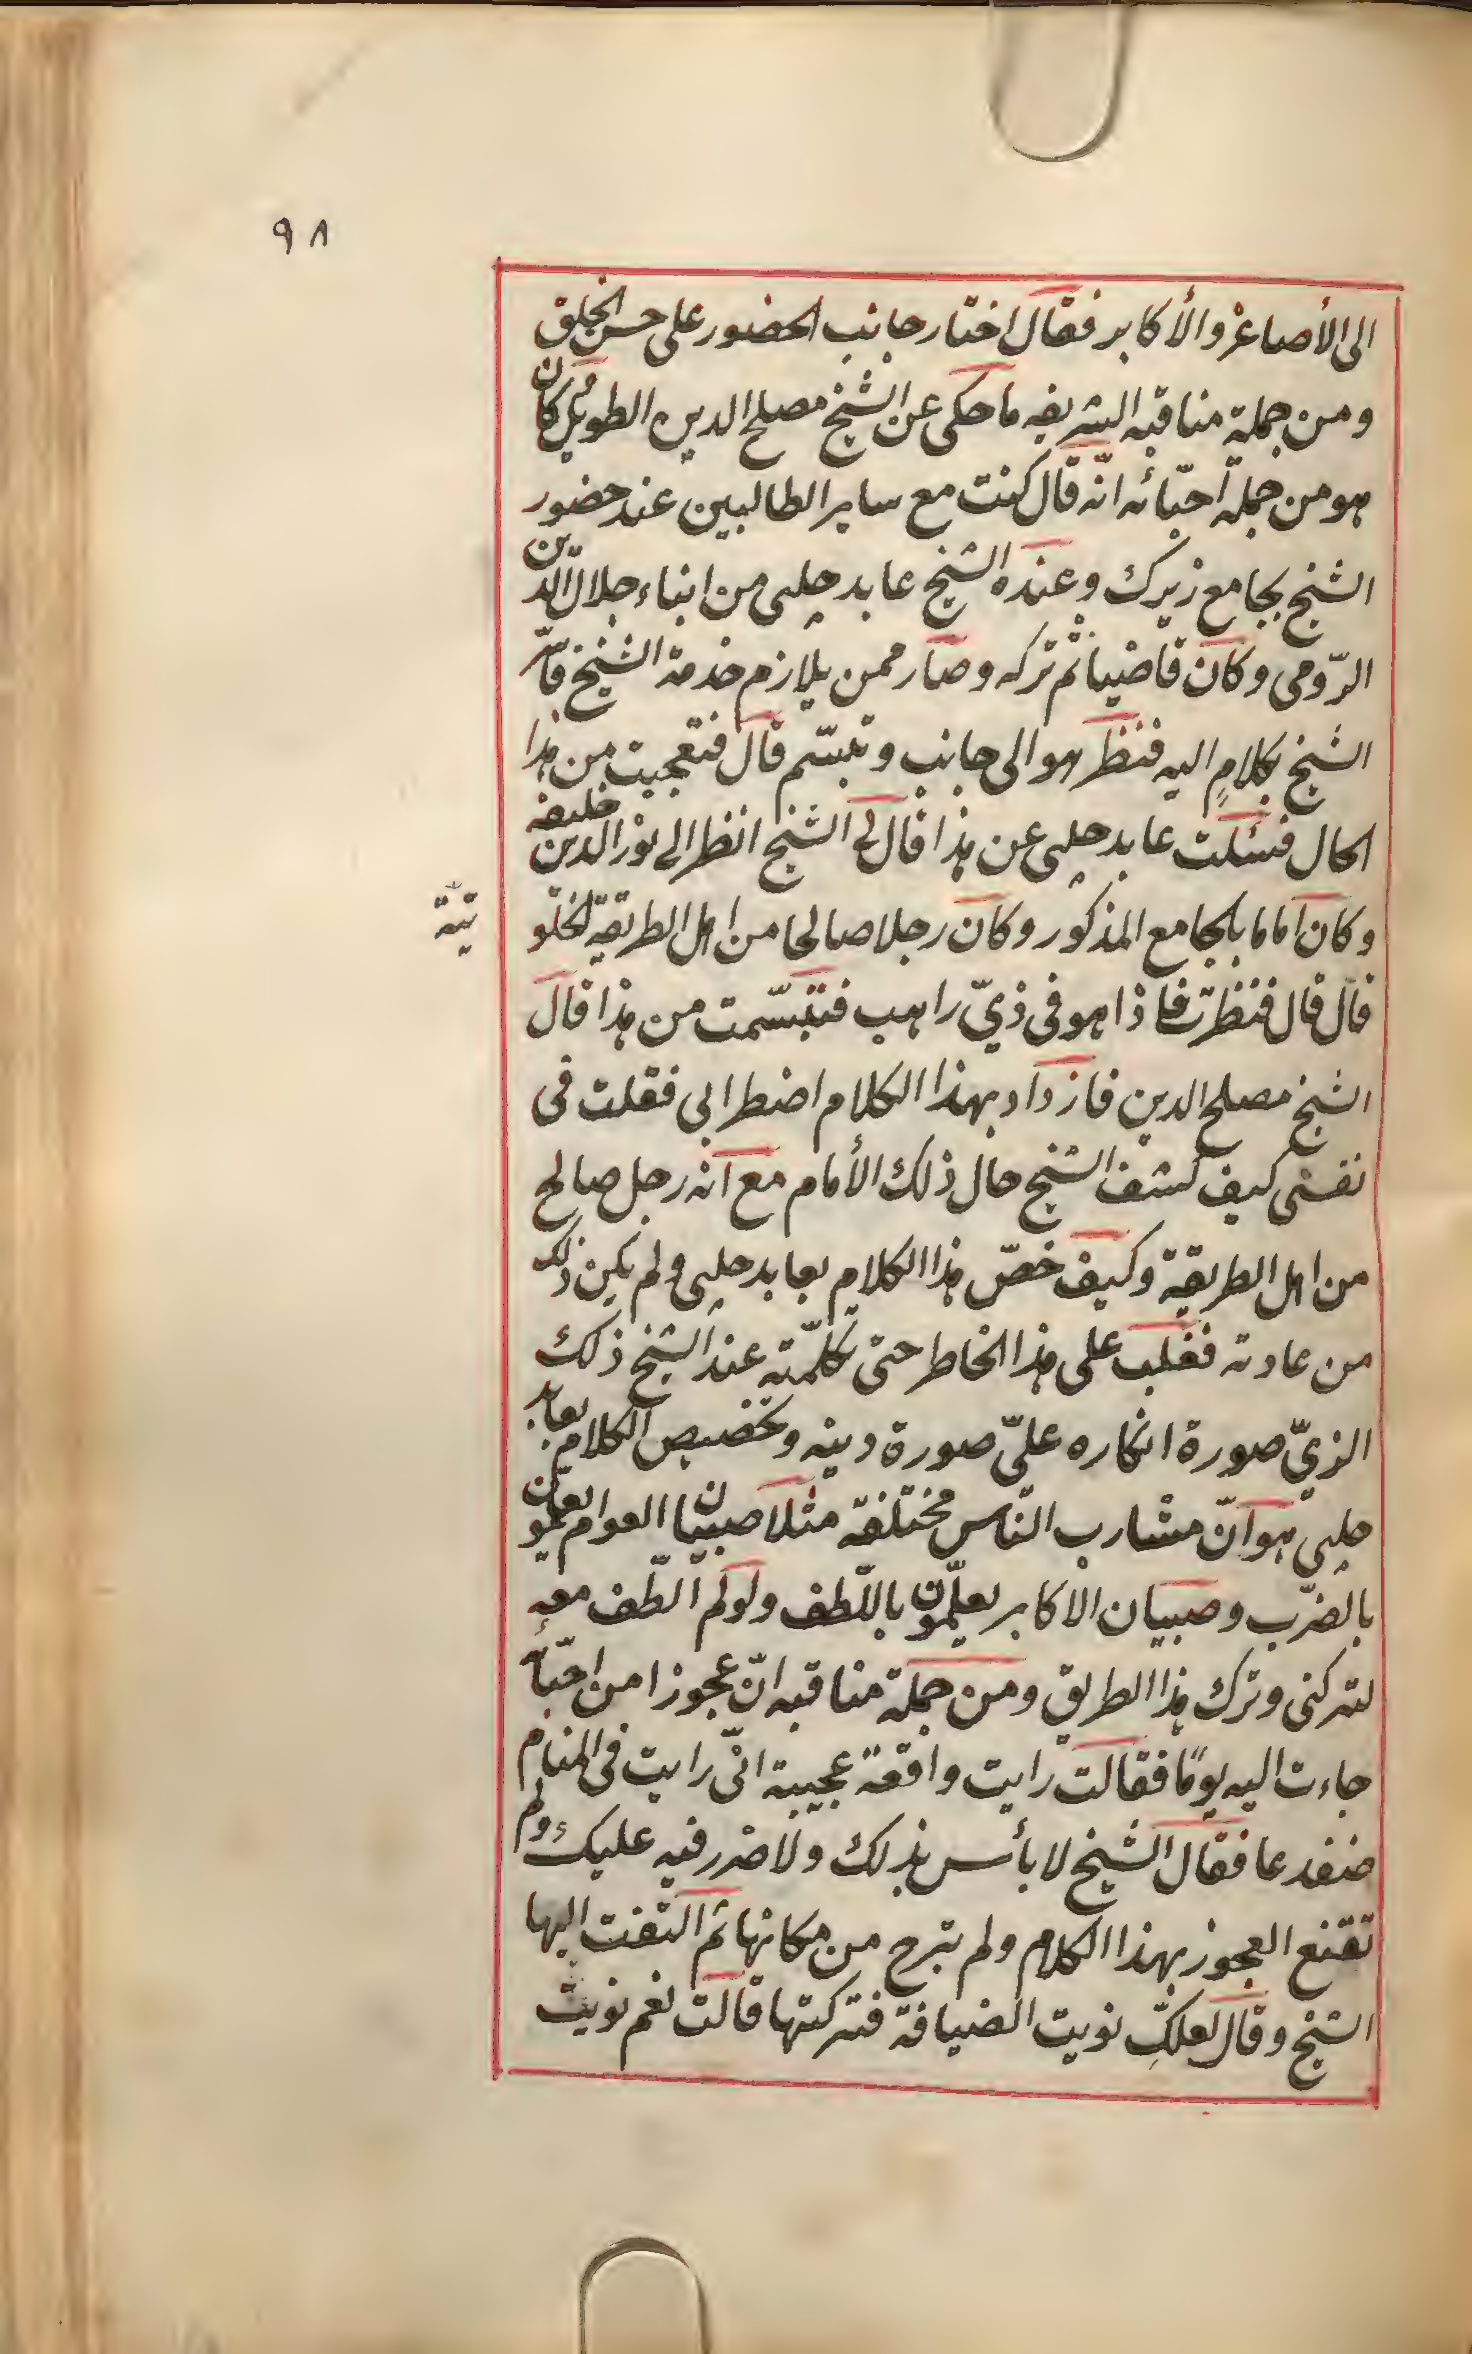 ٩٨
الى الأصاغر والأكابر فقال اختار جانب الحضور على حسن الخلق
ومن جملة مناقبه الشريفه ما حكى عن الشيخ مصلح الدين الطويل كان
هو من جملة احبّائه انّه قال كنت مع ساير الطالبين عند حضور
الشيخ بجامع زيرك وعنده الشيخ عابد چلبى من ابناء جلال الدين
الرّومى وكان قاضيا ثم تركه وصار ممن يلازم خدمة الشيخ فاسرّ
الشيخ بكلامٍ اليه فنظر هو الى جانب وتبسّم قال فتعجبت من هذا
الحال فسئلت عابد چلبى عن هذا قال لى الشيخ انظر الى نور الدين خليفه
وكان اماما بالجامع المذكور وكان رجلا صالحا من اهل الطريقة الخلو
تيّة
قال قال فنظرت فاذا هو فى ذيّ راهب فتبسّمت من هذا قال
الشيخ مصلح الدين فازداد بهذا الكلام اضطرابى فقلت فى
نفسى كيف كشف الشيخ حال ذلك الأمام مع انه رجل صالح
من اهل الطريقة وكيف خصّ هذا الكلام بعابد چلبى ولم يكن ذلك
من عادته فغلب على هذا الخاطر حتى تكلّمته عند الشيخ ذلك
الزيّ صورة انكاره علىّ صورة دينه وتخصيص الكلام بعابد
چلبى هو انّ مشارب النّاس مختلفة مثلا صبيان العوام يعلّمون
بالضّرب وصبيان الاكابر يعلّمون باللّطف ولو لم الطّف معه
لتركنى وترك هذا الطريق ومن جملة مناقبه انّ عجوزا من احبّائه
جاءت اليه يومًا فقالت رايت واقعة عجيبة انّى رايت فى المنام
ضفدعا فقال الشيخ لا بأس بذلك ولا ضرر فيه عليك ولم
تقنع العجوز بهذا الكلام ولم تبرح من مكانها ثم التفت اليها
الشيخ وقال لعلكِّ نويت الضيافة فتركتها قالت نعم نويت